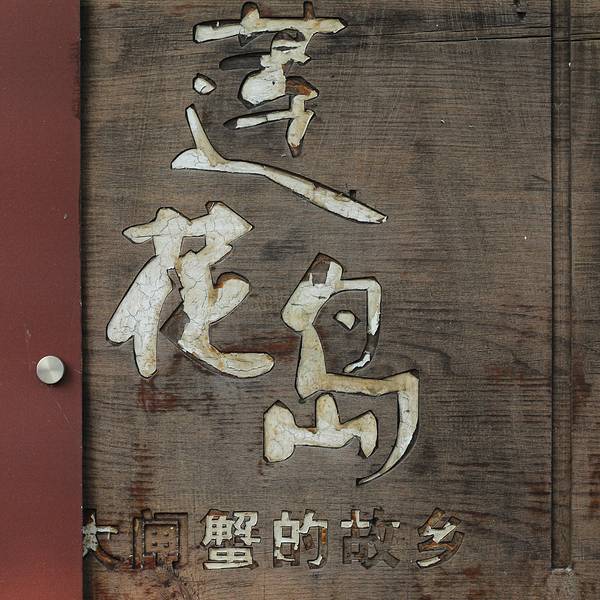 莲花岛
大闸蟹的故乡